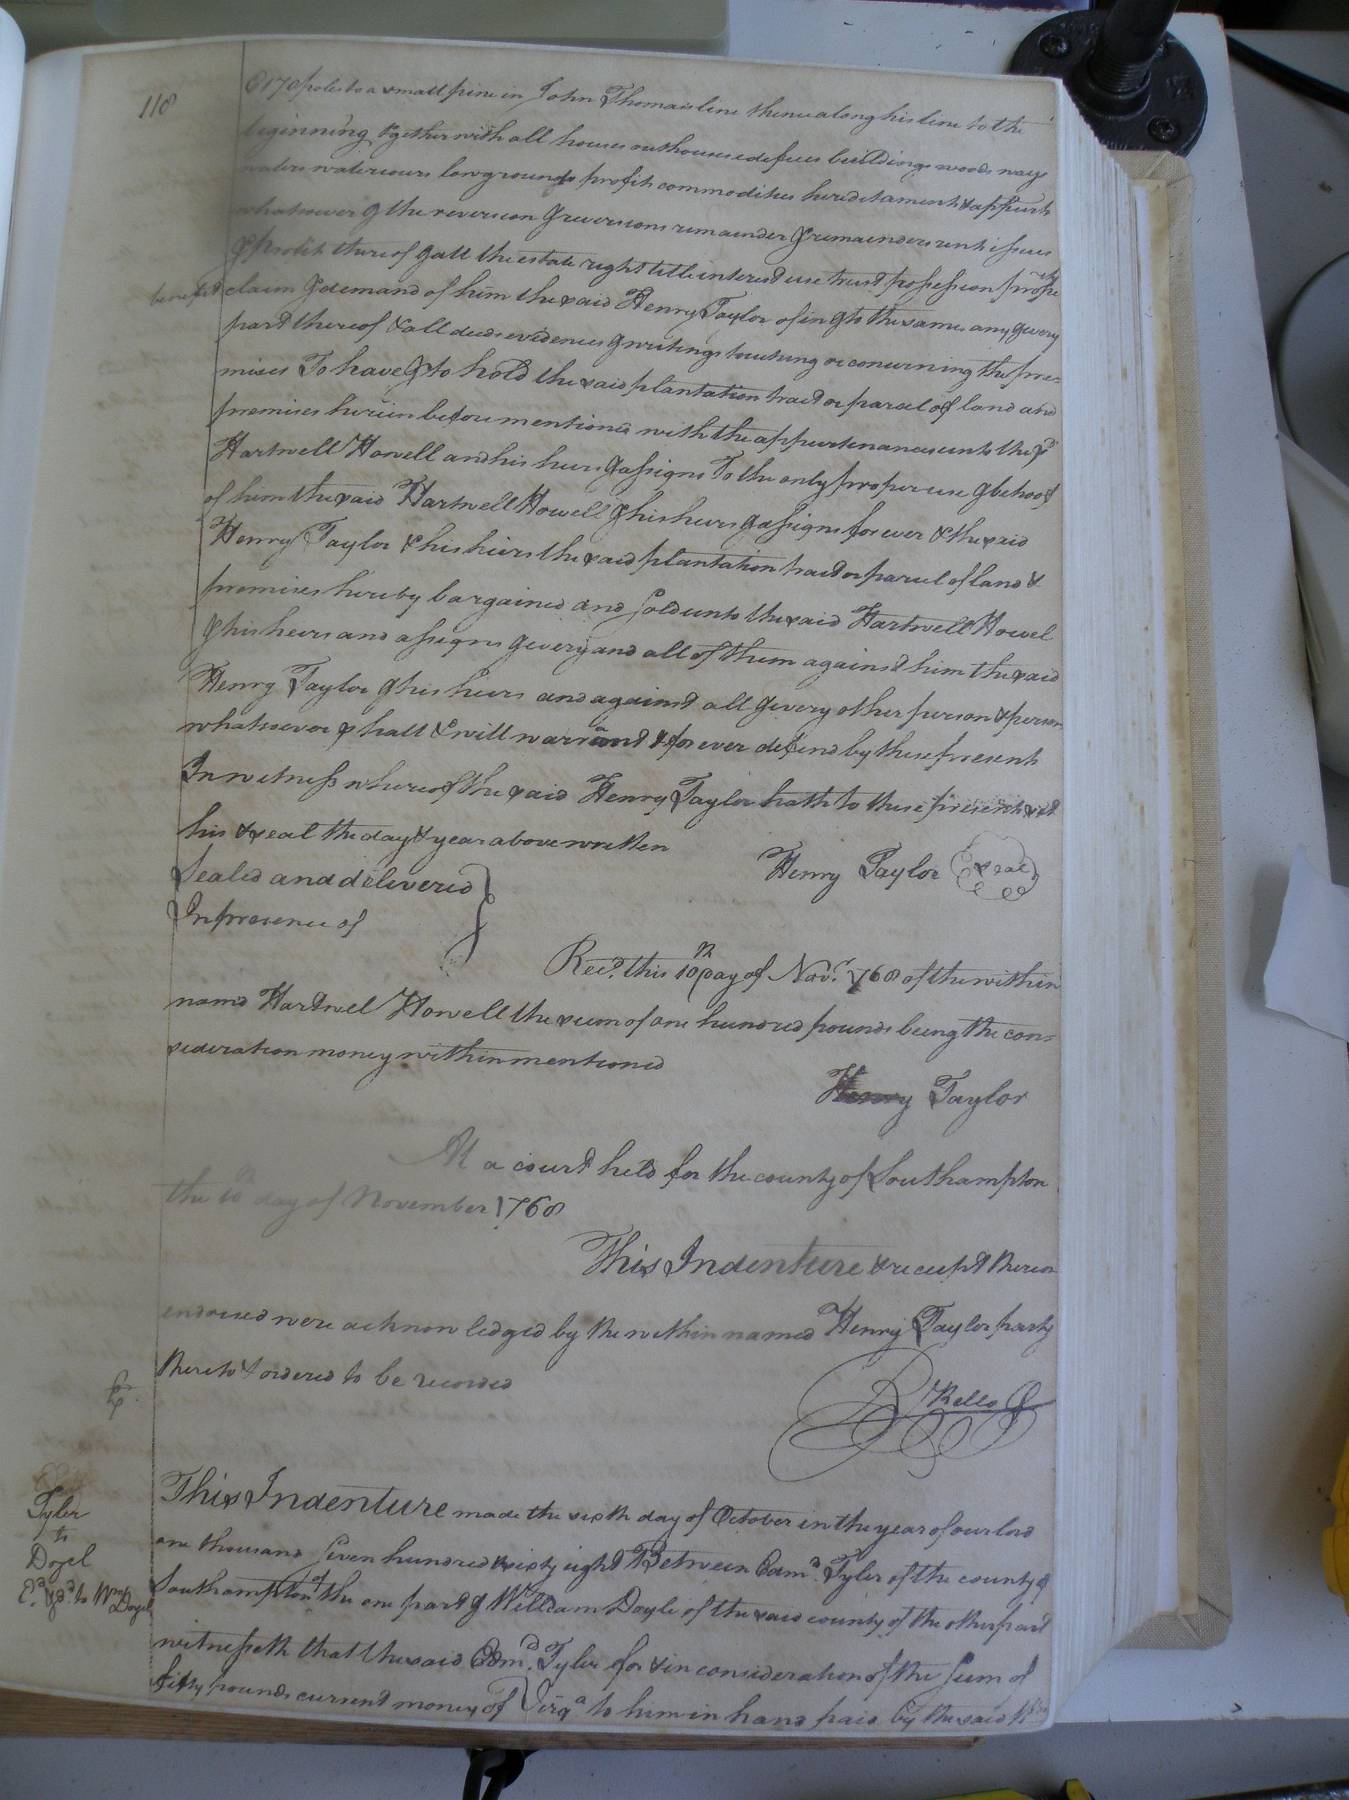 118
E 170 poles to a small pine in John Thomas's line thence along his line to the
beginning together with all houses outhouses edifices buildings woods ways
waters watercours lowgrounds profits commodities hereditaments & appurts
whatsoever & the reversion & reversions remainder & remainders rents issues
& profits thereof & all the estate right title interest use trust possession prope rty
benefit claim & demand of him the said Henry Taylor of in & to the same any & every
part thereof & all deeds evidences & writings touching or concerning the pre=
mises To have & to hold the said plantation tract or parcel of land and
premises herein before mentioned with the appurtenances unto the sd
Hartwell Howell and his heirs & assigns To the only proper use & behoof
of him the said Hartwell Howell & his heirs & assigns for ever & the said
Henry Taylor & his heirs the said plantation tract or parcel of land &
premises hereby bargained and Sold unto the said Hartwell Howel
& his heirs and assigns & every and all of them against him the said
Henry Taylor & his heirs and against all & every other person & person
whatsoever shall & will warrant & for ever defend by these presents
In witness whereof the said Henry Taylor hath to these presents set
his & seal the day & year above written
Henry Taylor (seal)
Sealed and delivered
In presence of
Recd. this 10th day of Novr. 1768 of the within
named Hartwel Howell the sum of one hundred pounds being the con=
sideration money within mentioned
Henry Taylor
At a court held for the county of Southampton
the 10th day of November 1768
This Indenture & receipt thereon
endorsed were acknowledged by the within named Henry Taylor party
thereto & ordered to be recorded
R Kello
This Indenture made the sixth day of October in the year of our lord
one thousand Seven hundred & sixty eight Between Edmd. Tyler of the county of
Southampton of the one part & William Doyle of the said county of the other part
witnesseth that the said Edmd. Tyler for & in consideration of the Sum of
fifty pounds current money of Virga to him in hand paid by the said
Tyler
to
Doyel
Ed. & dd. to Wm Doyel